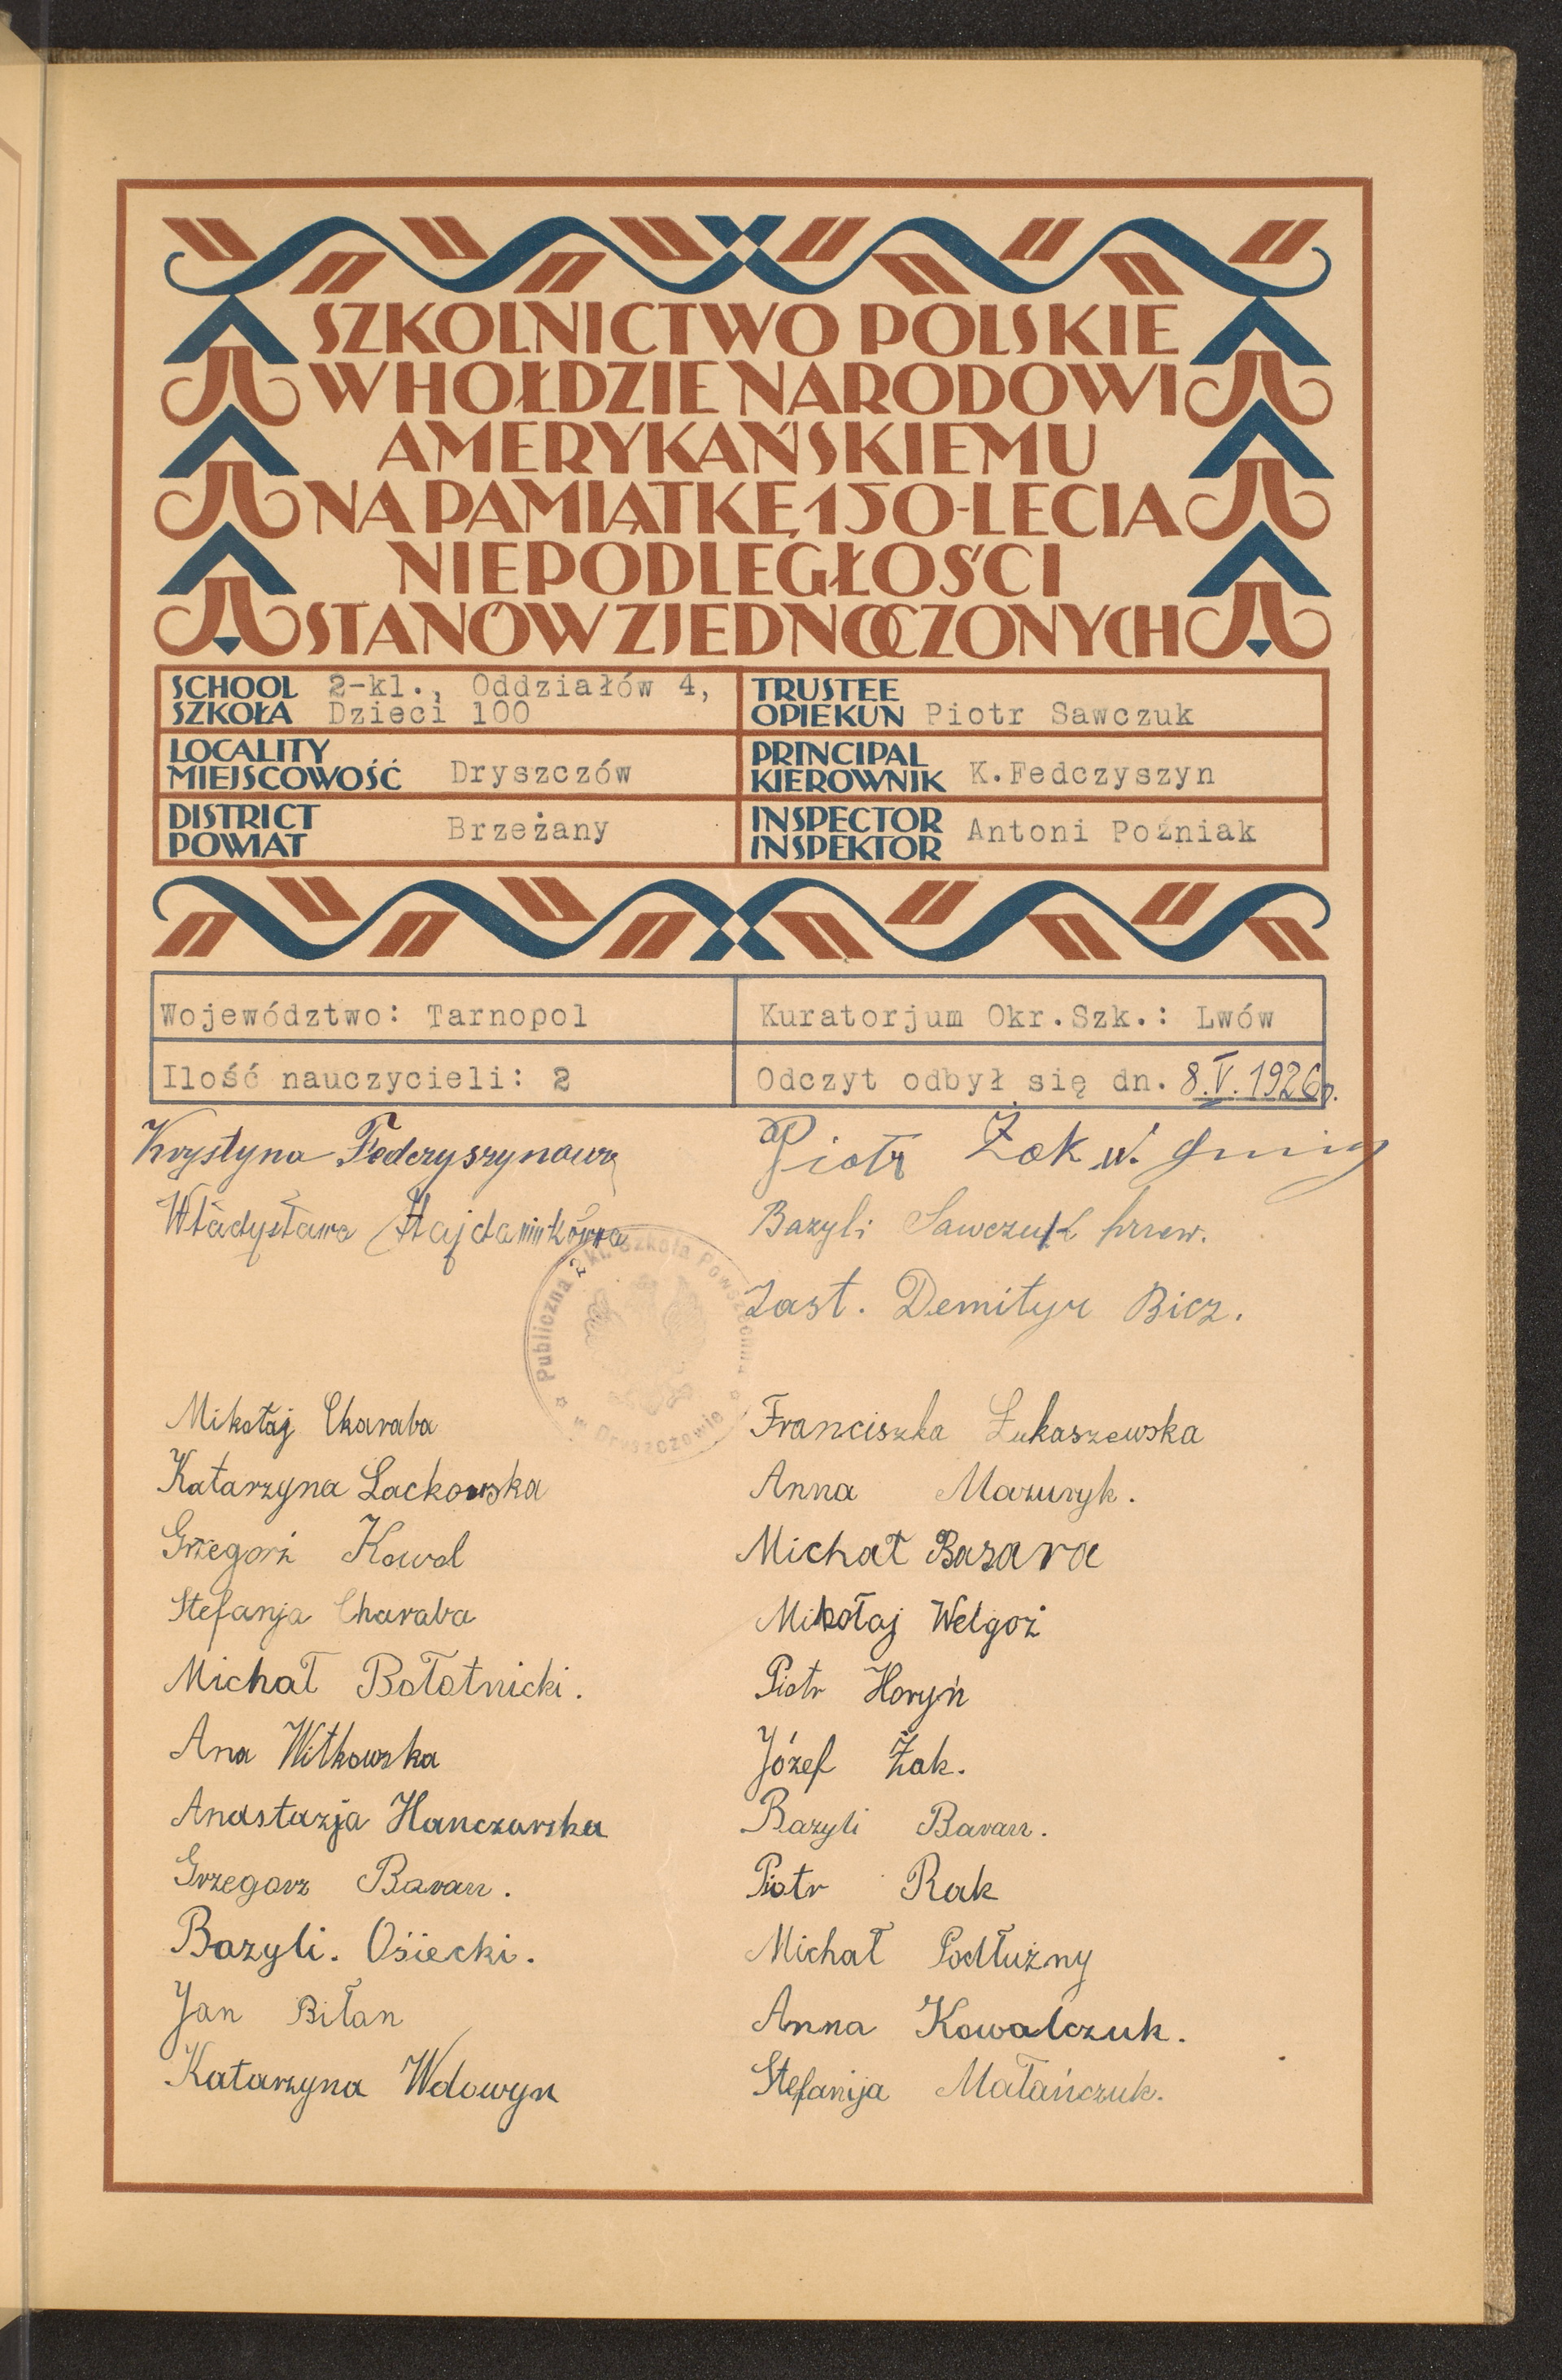 SZKOLNICTWO POLSKIE
W HOŁDZIE NARODOWI
AMERYKAŃSKIEMU
NA PAMIĄTKĘ 150-LECIA
NIEPODLEGŁOŚCI
STANÓW ZJEDNOCZONYCH
SCHOOL SZKOŁA 2-kl., Oddziałów 4,
Dzieci 100
TRUSTEE OPIEKUN Piotr Sawczuk
LOCALITY MIEJSCOWOŚĆ Dryszczów
PRINCIPAL KIEROWNIK K.Fedczyszyn
DISTRICT POWIAT Brzeżany
INSPECTOR INSPEKTOR Antoni Poźniak
Województwo: Tarnopol
Kuratorjum Okr.Szk.: Lwów
Ilość nauczycieli: 2
Odczyt odbył się dn. 8.V.1926r.
Krystyna Fedczyszynowa
Władysława
Piotr Żok w. gminy
Bazyli Sawczuk
Zast. Demityr Bicz.
Publiczna 2 kl. Szkoła Powszechna
w Dryszczowie
Mikołaj Charaba
Katarzyna Lackowska
Grzegorz Kowal
Stefanja Charaba
Michał Bołotnicki.
Ana Witkowska
Anastazja Hanczarska
Grzegorz Baran.
Bazyli. Osiecki.
Jan Biłan
Katarzyna Wdowyn
Franciszka Łukaszewska
Anna Mazuryk.
Michał Bazara
Mikołaj Welgoż
Piotr Horyń
Józef Żak.
Bazyli Baran.
Piotr Rak
Michał Podłużny
Anna Kowalczuk.
Stefanija Małańczuk.